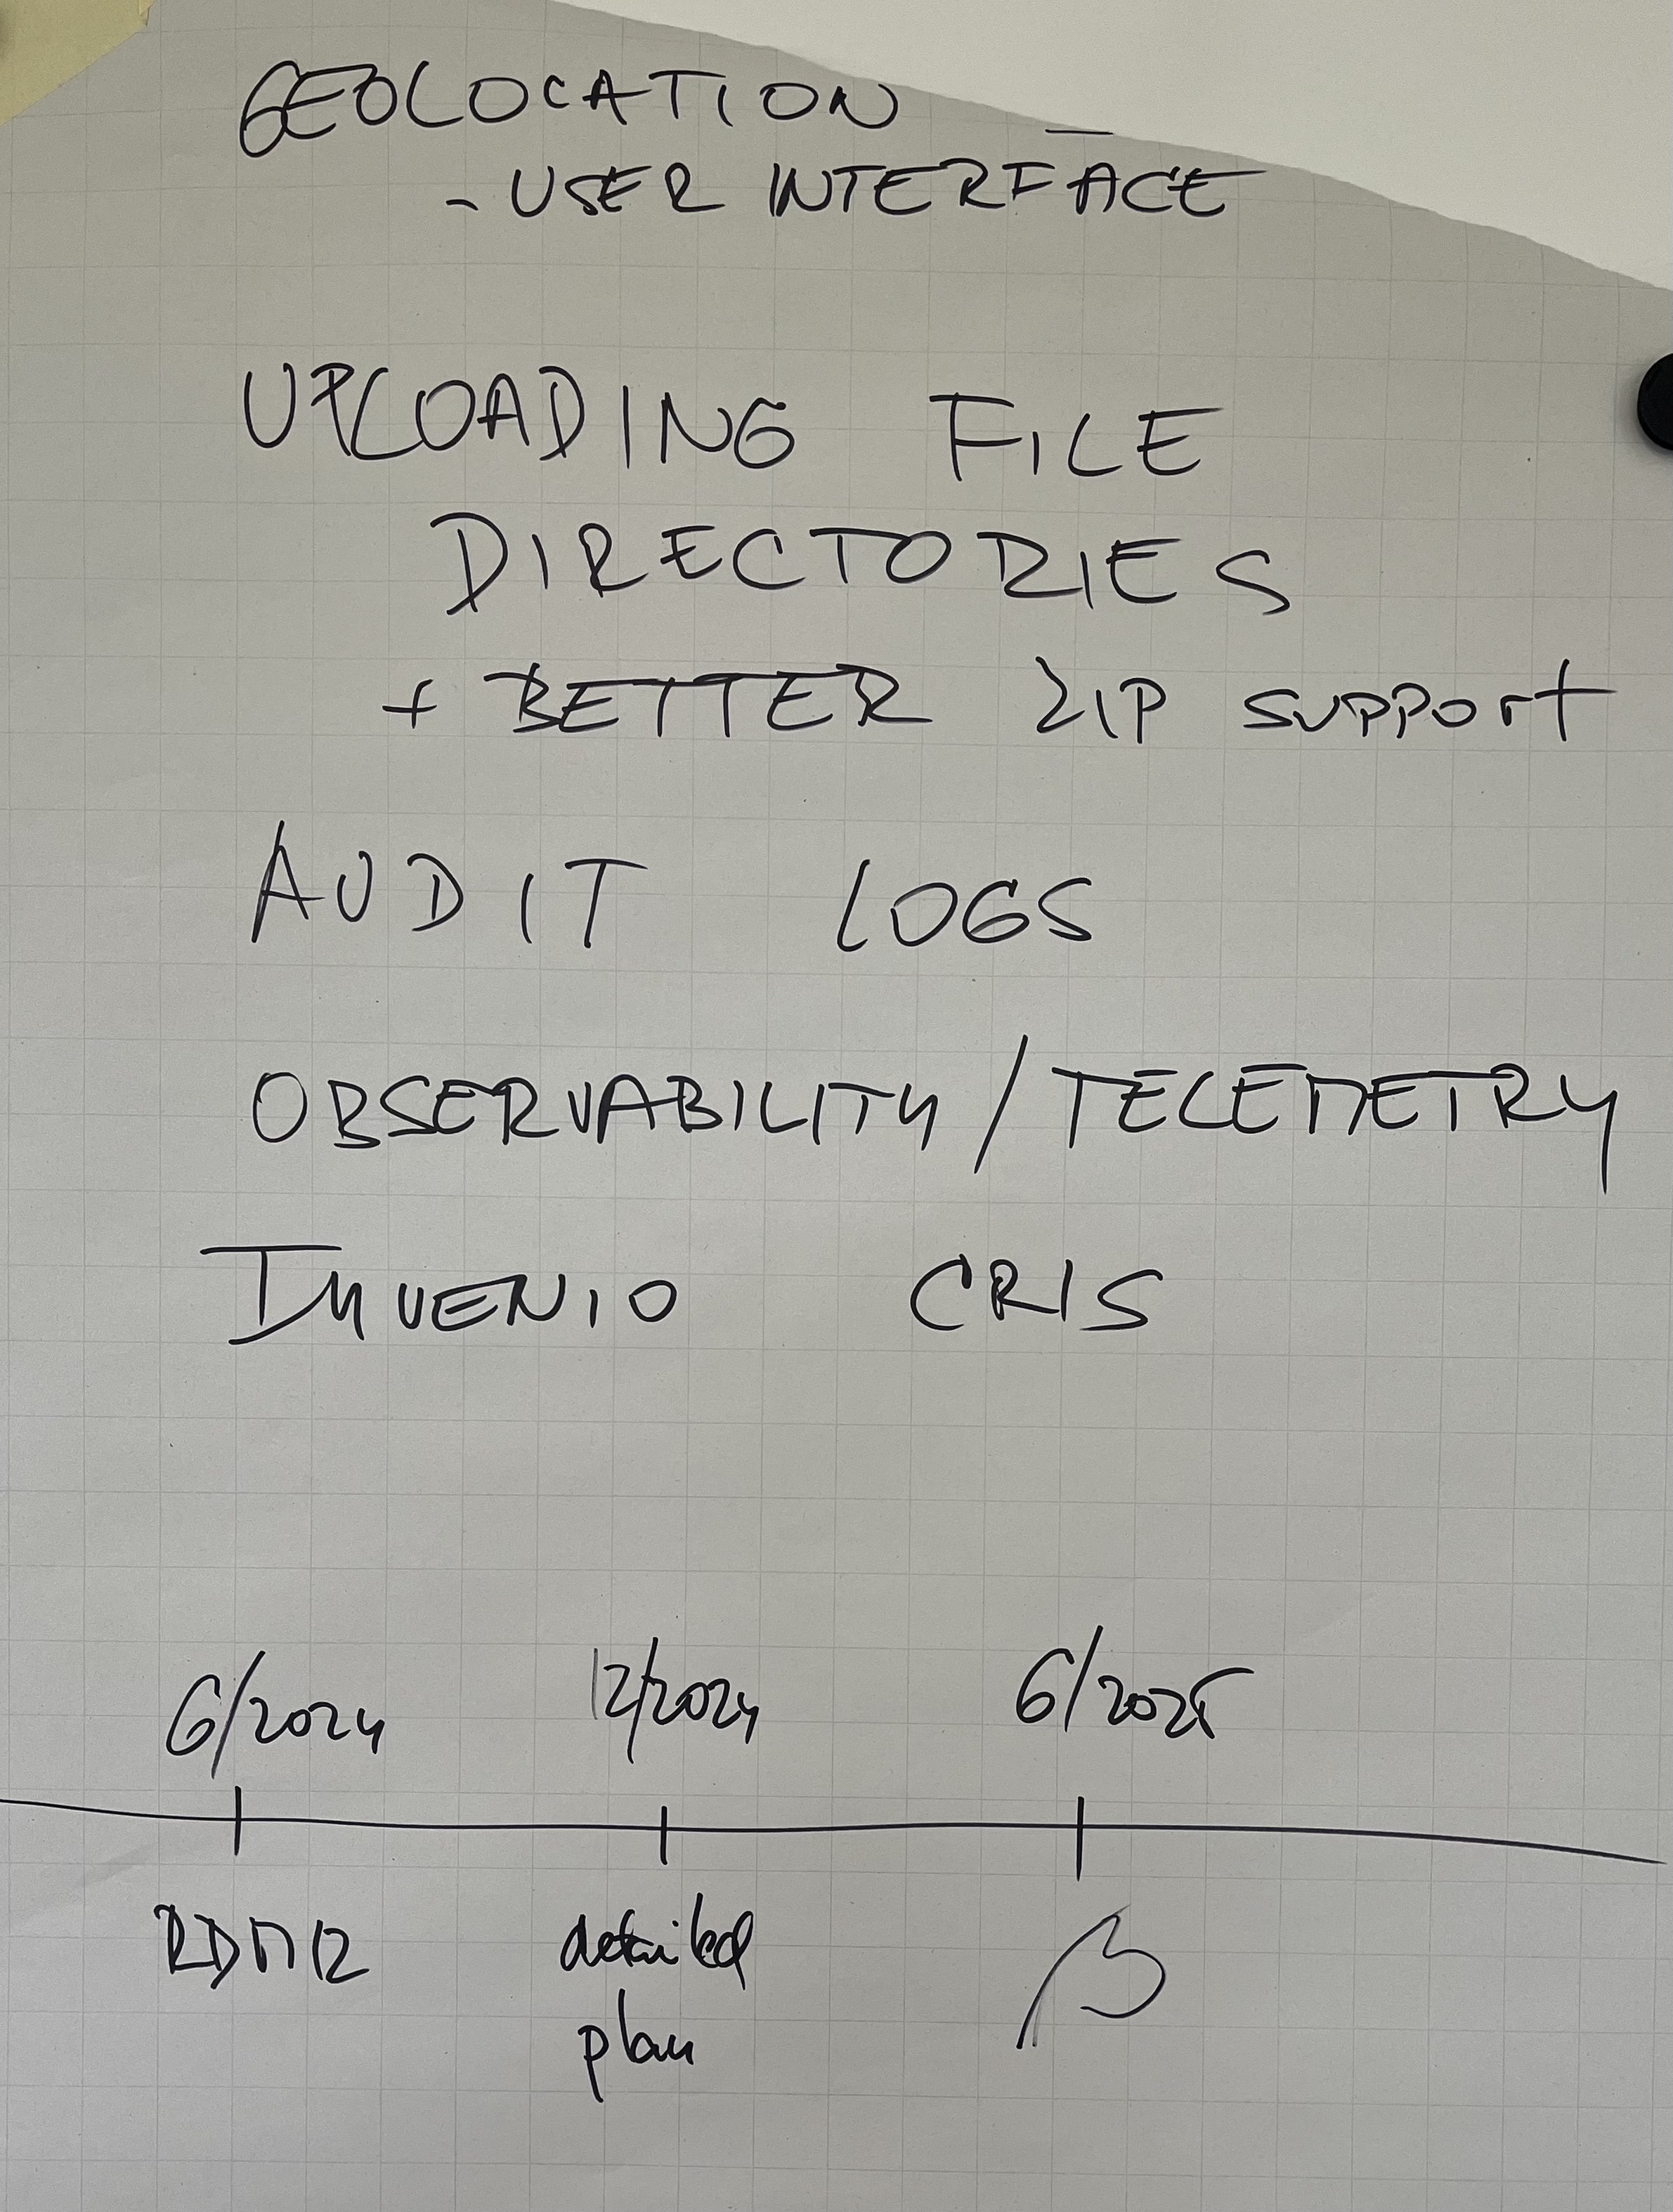 GEOLOCATION
- USER INTERFACE
UPLOADING FILE
DIRECTORIES
+ BETTER ZIP support
AUDIT LOGS
OBSERVABILITY / TELEMETRY
INVENIO CRIS
6/2024 12/2024 6/2025
RDM12 detailed β
plan